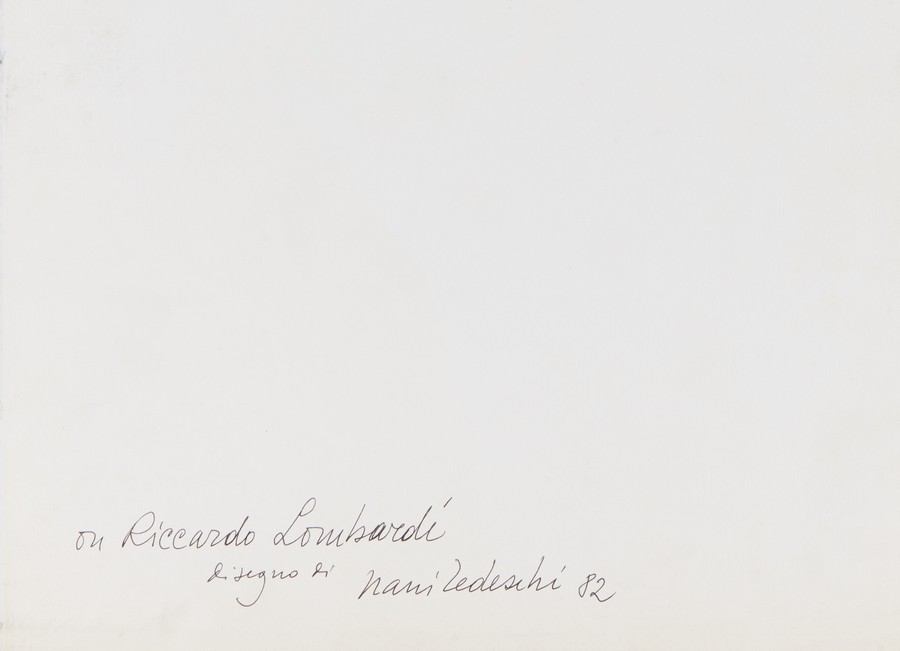 on Riccardo Lombardi
disegno di Nani Tedeschi 82